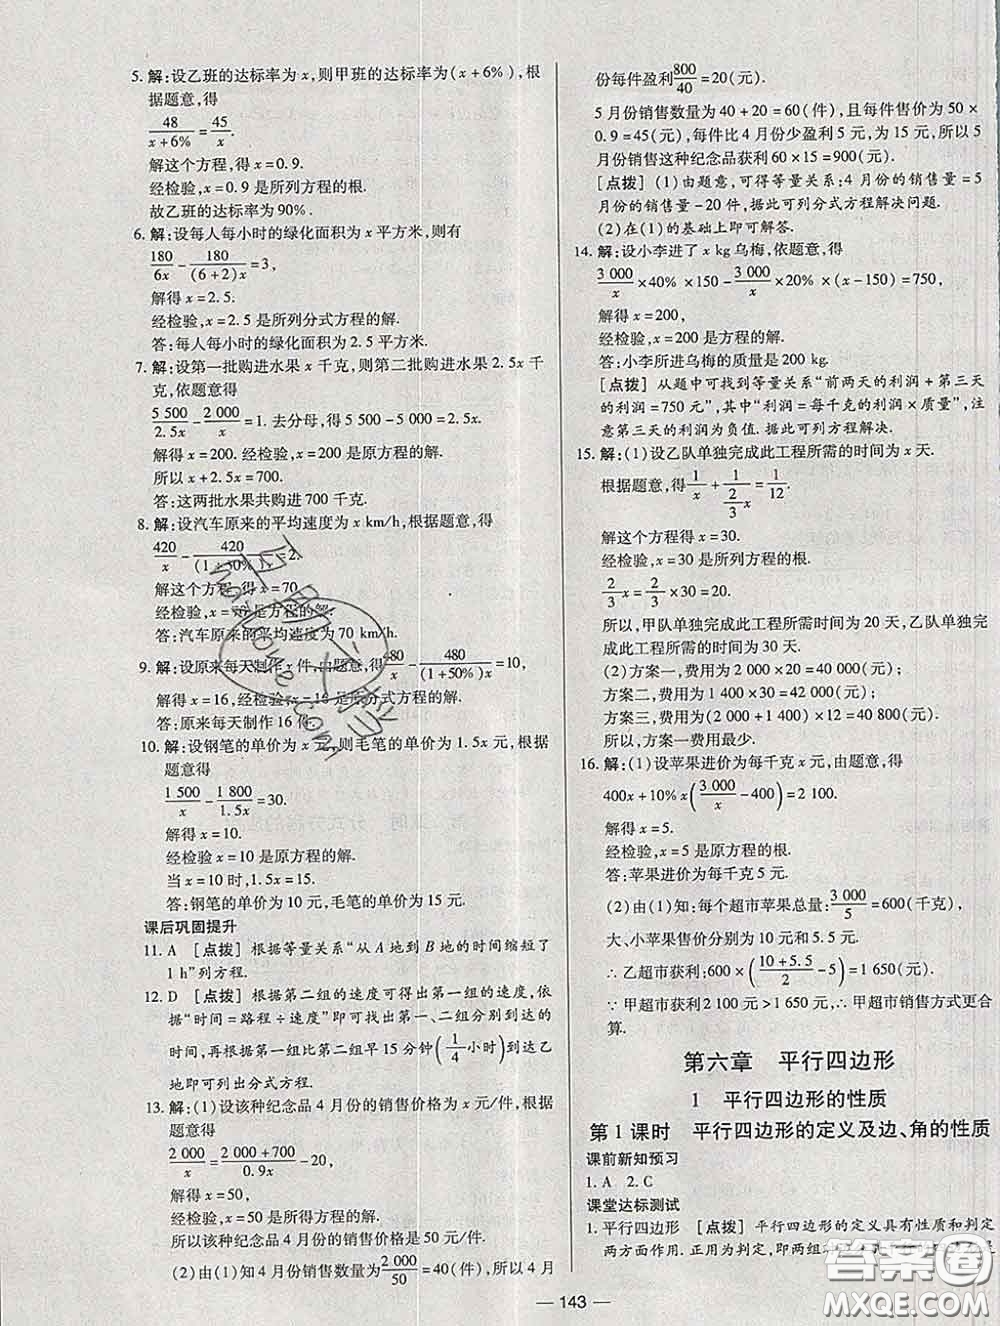 5. 解:设乙班的达标率为x,则甲班的达标率为(x+6%),根
据题意,得
48/(x+6%)=45/x.
解这个方程,得x=0.9.
经检验,x=0.9是所列方程的根.
故乙班的达标率为90%.
6. 解:设每人每小时的绿化面积为x平方米,则有
180/6x-180/(6+2)x=3,
解得x=2.5.
经检验,x=2.5是所列分式方程的解.
答:每人每小时的绿化面积为2.5平方米.
7. 解:设第一批购进水果x千克,则第二批购进水果2.5x千
克,依题意得
5 500/2.5x-2 000/x=1. 去分母,得5 500-5 000=2.5x.
解得x=200. 经检验,x=200是所列方程的解.
所以x+2.5x=700.
答:这两批水果共购进700千克.
8. 解:设汽车原来的平均速度为x km/h,根据题意,得
420/x-420/(1+50%)x=2.
解这个方程,得x=70.
经检验,x=70是方程的解.
答:汽车原来的平均速度为70 km/h.
9. 解:设原来每天制作x件,由题意,得480/x-480/(1+50%)x=10,
解得x=16,经检验,x=16是原分式方程的解.
答:原来每天制作16件.
10. 解:设钢笔的单价为x元,则毛笔的单价为1.5x元,根据
题意得
1 500/x-1 800/1.5x=30.
解得x=10.
经检验x=10是原方程的解.
当x=10时,1.5x=15.
答:钢笔的单价为10元,毛笔的单价为15元.
课后巩固提升
11. A [点拨] 根据等量关系“从A地到B地的时间缩短了
1 h”列方程.
12. D [点拨] 根据第二组的速度可得出第一组的速度,依
据“时间=路程÷速度”即可找出第一、二组分别到达的
时间,再根据第一组比第二组早15分钟(1/4小时)到达乙
地即可列出分式方程.
13. 解:(1)设该种纪念品4月份的销售价格为x元/件,根据
题意得
2 000/x=(2 000+700)/0.9x-20,
解得x=50,
经检验,x=50是所得方程的解.
所以该种纪念品4月份的销售价格是50元.
(2)由(1)知4月份销售数量为2 000/50=40(件),所以4月
份每件盈利800/40=20(元).
5月份销售数量为40+20=60(件),且每件售价为50×
0.9=45(元),每件比4月份少盈利5元,为15元,所以5
月份销售这种纪念品获利60×15=900(元).
[点拨] (1)由题意,可得等量关系:4月份的销售量=5
月份的销售量-20件,据此可列分式方程解决问题.
(2)在(1)的基础上即可解答.
14. 解:设小李进了x kg乌梅,依题意,得
3 000/x×40%×150-3 000/x×20%×(x-150)=750,
解得x=200,
经检验,x=200是方程的解.
答:小李所进乌梅的质量是200 kg.
[点拨] 从题中可找到等量关系“前两天的利润+第三天
的利润=750元”,其中“利润=每千克的利润×质量”,注
意第三天的利润为负值. 据此可列方程解决.
15. 解:(1)设乙队单独完成此工程所需的时间为x天.
根据题意,得1/x+1/(2/3 x)=1/12.
解得x=30.
经检验,x=30是所列方程的根.
2/3 x=2/3×30=20.
所以,甲队单独完成此工程所需时间为20天,乙队单独完
成此工程所需的时间为30天.
(2)方案一,费用为2 000×20=40 000(元),
方案二,费用为1 400×30=42 000(元),
方案三,费用为(2 000+1 400)×12=40 800(元).
所以,方案一费用最少.
16. 解:(1)设苹果进价为每千克x元,由题意,得
400x+10%x(3 000/x-400)=2 100.
解得x=5.
经检验,x=5是原方程的解.
答:苹果进价为每千克5元.
(2)由(1)知:每个超市苹果总量:3 000/5=600(千克),
大、小苹果售价分别为10元和5.5元.
∴乙超市获利:600×((10+5.5)/2-5)=1 650(元).
∵甲超市获利2 100元>1 650元,∴甲超市销售方式更合
算.
第六章 平行四边形
1 平行四边形的性质
第1课时 平行四边形的定义及边、角的性质
课前新知预习
1. A 2. C
课堂达标测试
1. 平行四边形 [点拨] 平行四边形的定义具有性质和判定
两方面作用. 正用为判定,即两组
143
答案圈
MXQE.COM